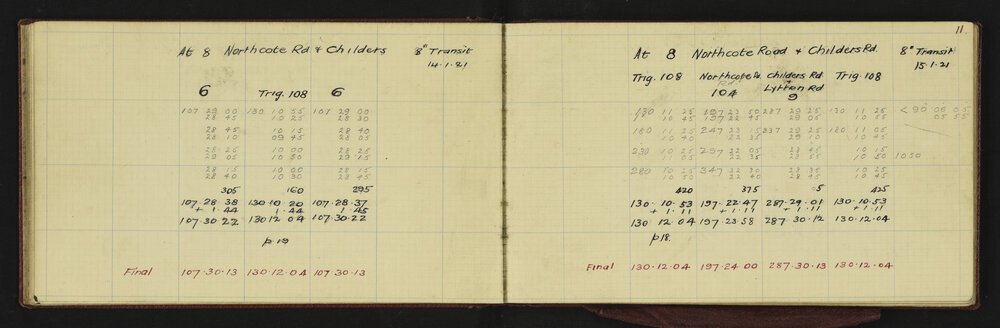 At 8 Northcote Rd & Childers 8" Transit
14.1.21
6 Trig. 108 6
107 29 00 130 10 55 107 29 00
28 45 10 25 28 30
28 45 10 15 28 40
28 10 09 45 28 05
28 25 10 00 28 25
29 05 10 50 29 15
28 15 10 00 28 15
28 40 10 30 28 45
305 160 295
107.28.38 130.10 20 107.28.37
+ 1.44 1.44 1.45
107.30.22 130 12 04 107.30.22
p.19
Final 107.30.13 130.12.04 107.30.13
11.
At 8 Northcote Road & Childers Rd. 8" Transit
15.1.21
Trig. 108 Northcote Rd. Childers Rd Trig. 108
Lytton Rd
10A 9
130 11 25 197 23 50 287 29 25 130 11 25 < 90 06 05
10 45 197 22 45 29 05 10 55 05 55
180 11 25 247 23 15 337 29 25 180 11 05
10 35 22 35 29 10 10 45
230 10 25 297 22 05 28 45 10 15
11 05 22 35 28 55 10 50 1050
280 10 25 347 22 30 28 35 10 25
10 50 22 40 28 45 10 45
420 375 5 425
130.10.53 197.22.47 287.29.01 130.10.53
+ 1.11 + 1.11 + 1.11 + 1.11
130 12 04 197.23.58 287 30.12 130.12.04
p18.
Final 130.12.04 197.24.00 287.30.13 130.12.04